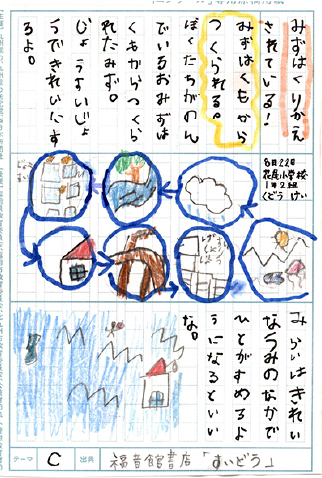 みずはくりかえ
されている！
みずはくもから
つくられる。
ぼくたちがのん
でいるおみずは
くもからつくら
れたみず。
じょうすいじょ
うできれいにす
るよ。
8月22日
花尾小学校
1年2組
くどう けい
みらいはきれい
なうみのなかで
ひとがすめるよ
うになるといい
な。
テーマ C 出典 福音館書店「すいどう」